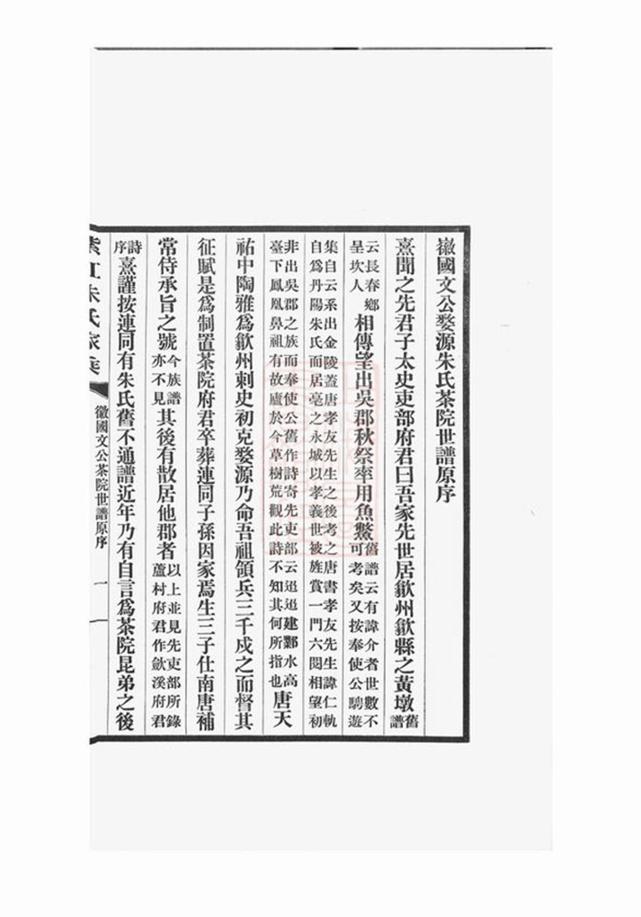 徽國文公婺源朱氏茶院世譜原序
熹聞之先君子太史吏部府君曰吾家先世居歙州歙縣之黃墩舊譜
云長春鄉呈坎人相傳望出吳郡秋祭率用魚鱉舊譜云有諱介者世數不可考矣又按奉使公騎遊
集自云系出金陵蓋唐孝友先生之後考之唐書孝友先生諱仁軌自爲丹陽朱氏而居亳之永城以孝義世被旌賞一門六闕相望初
非出吳郡之族而奉使公舊作詩寄先吏部云迢迢建鄴水高臺下鳳凰鼻祖有故廬於今草樹荒觀此詩不知其何所指也唐天
祐中陶雅爲歙州刺史初克婺源乃命吾祖領兵三千戍之而督其
征賦是爲制置茶院府君卒葬連同子孫因家焉生三子仕南唐補
常侍承旨之號今族譜亦不見其後有散居他郡者以上並見先吏部所錄蘆村府君作歙溪府君
詩序熹謹按連同有朱氏舊不通譜近年乃有自言爲茶院昆弟之後
朱氏家乘
徽國文公茶院世譜原序
一